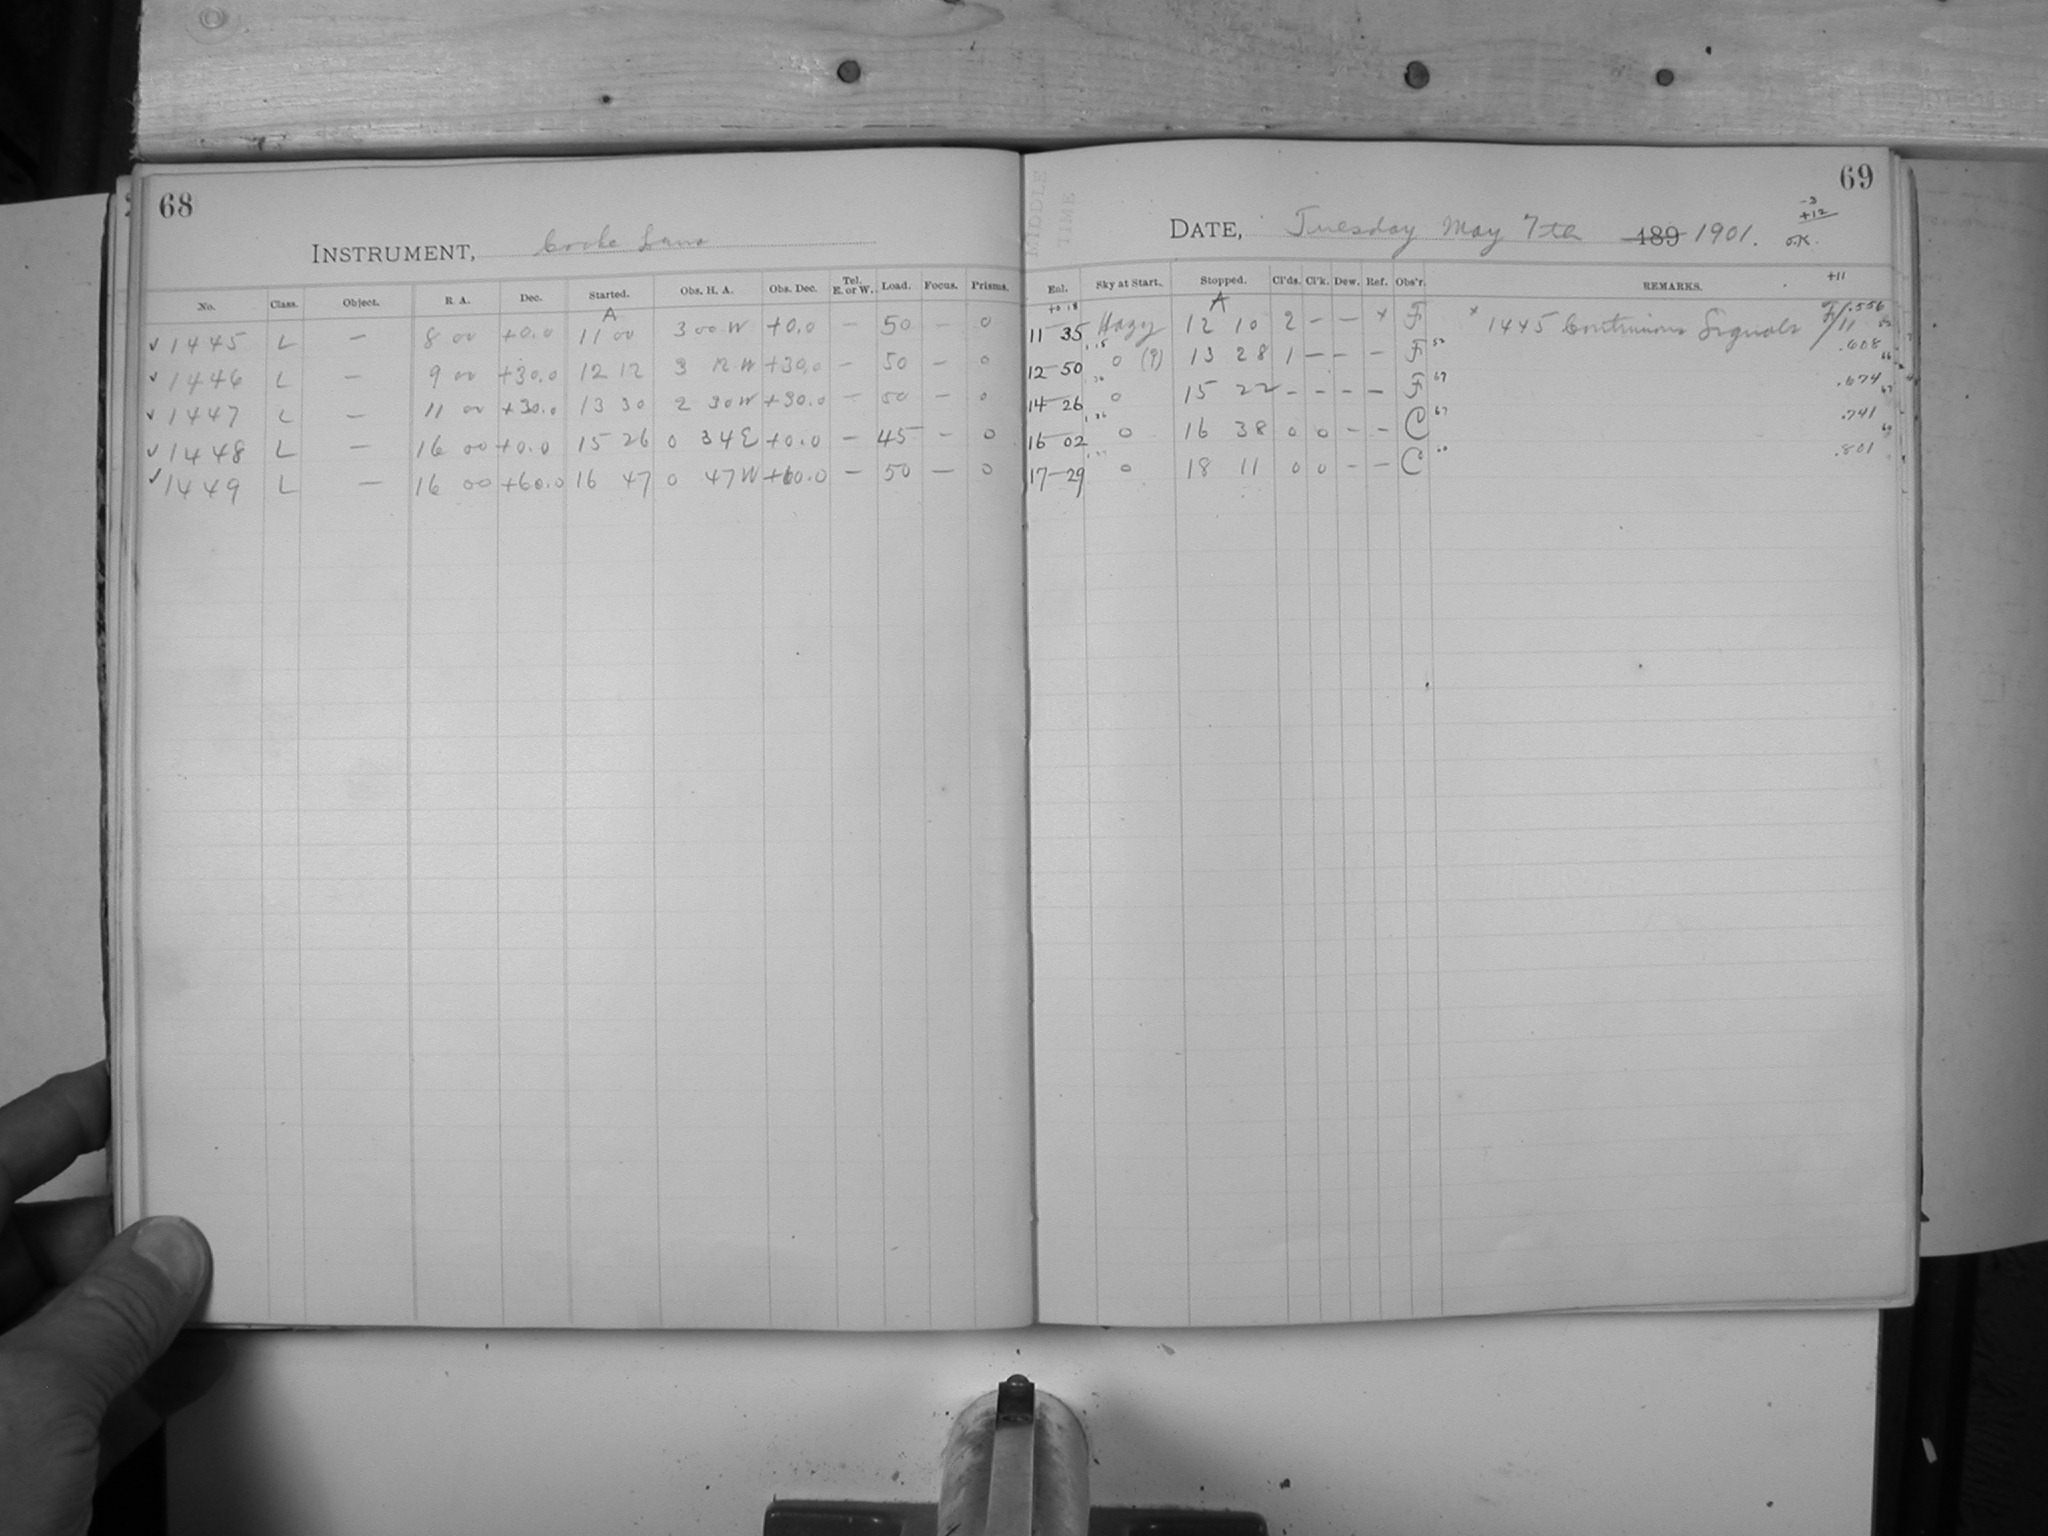 68
INSTRUMENT, Cooke Lens
No. Class. Object. R. A. Dec. Started. Obs. H. A. Obs. Dec. Tel. E. or W. Load. Focus. Prisms.
A
✓ 1445 L — 8 00 +0.0 11 00 3 00 W +0.0 — 50 — 0
✓ 1446 L — 9 00 +30.0 12 12 3 12 W +30.0 — 50 — 0
✓ 1447 L — 11 00 +30.0 13 30 2 30 W +30.0 — 50 — 0
✓ 1448 L — 16 00 +0.0 15 26 0 34 E +0.0 — 45 — 0
✓ 1449 L — 16 00 +60.0 16 47 0 47 W +60.0 — 50 — 0
69
MIDDLE
TIME
-3
+12
O.K.
DATE, Tuesday May 7th 189 1901.
+11
Enl. Sky at Start. Stopped. Cl'ds. Cl'k. Dew. Ref. Obs'r. REMARKS.
A
11 35 Hazy 12 10 2 — — x F x 1445 Continuous Signals F/11 .556
12 50 0 (?) 13 28 1 — — — F 52 .608
14 26 0 15 22 — — — — F 67 .674
16 02 0 16 38 0 0 — — C 67 .741
17 29 0 18 11 0 0 — — C .801